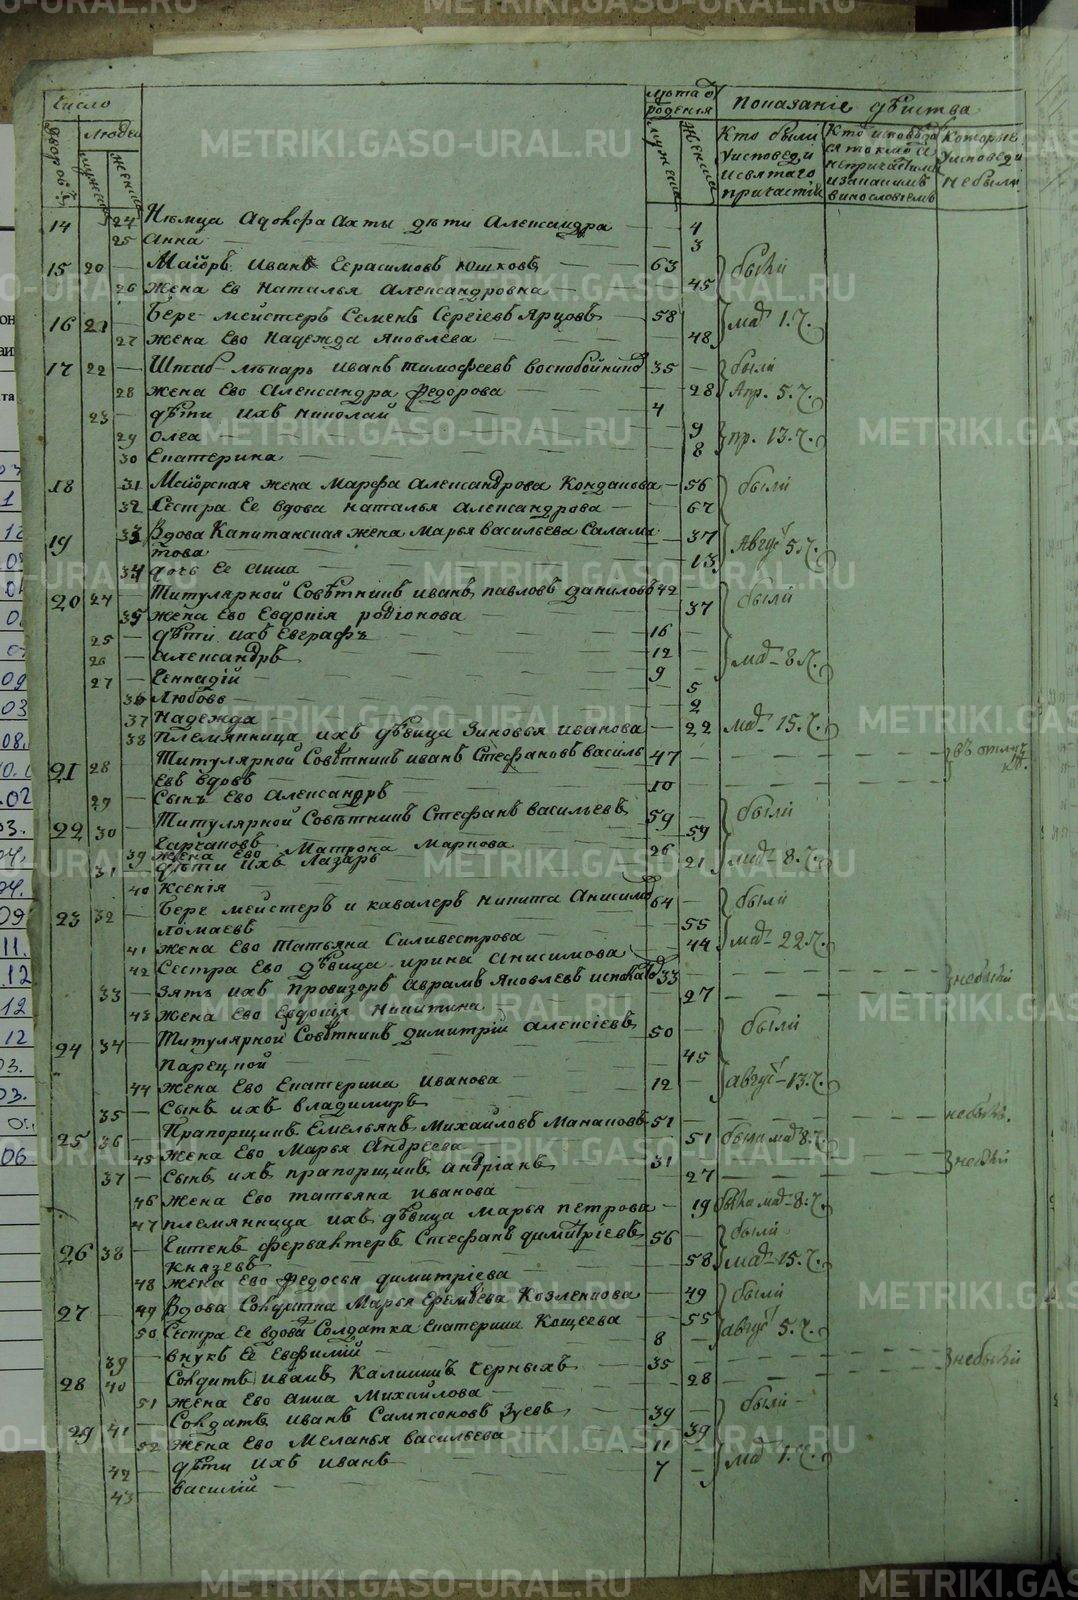 Число
Лѣта о рождения
Показаніе дѣйства
Дворовъ
Людей
мужеска
женска
мужеска
женска
Кто были у исповеди и святаго причастія
Кто исповѣдался токмо а непричастился и за какимъ винословіемъ
Которые у исповеди не были
14 24 Нѣмца Адольфа дѣти Александра — 4
25 Анна — 3
15 20 — Маіоръ Иванъ Герасимовъ Юшковъ — 63 были
26 жена Ев Наталья Александровна — 45
16 21 — Берг-мейстеръ Семенъ Сергіевъ Ярцовъ — 58 маі 1.
27 жена Ево Надежда Яковлева — 48
17 22 — Штаб-лѣкарь Иванъ Тимофеевъ 35 — были
28 жена Ево Александра Федорова — 28 Апр. 5.
23 — дѣти ихъ Николай — 4
29 Олга — 9 пр. 13.
30 Екатерина — 8
18 31 Маіорская жена Марфа Александрова — 56 были
32 Сестра Ее вдова Наталья Александрова — 67
19 33 Вдова Капитанская жена Марья Васильева Саламатова — 37 Август 5.
34 дочь Ее Анна — 13
20 24 — Титулярной Совѣтникъ Иванъ Павловъ Даниловъ 42 были
35 жена Ево Евдокія Родіонова 37
25 — дѣти ихъ Евграфъ 16 —
26 — Александръ 12 — маі 8.
27 — Геннадій — 9 —
36 Любовь — 5
37 Надежда — 2
38 племянница ихъ дѣвица Зиновья Иванова — 22 маі 15.
21 28 — Титулярной Совѣтникъ Иванъ Стефановъ Васильевъ вдовъ — 47 — въ отлуч.
29 — Сынъ Ево Александръ — 10
22 30 — Титулярной Совѣтникъ Стефанъ Васильевъ 59 — были
39 жена Ево Матрона Маркова 59
31 — дѣти ихъ Лазарь 26 маі 8.
40 Ксенія 21
23 32 — Берг мейстеръ и кавалеръ Никита Анисимо Ломаевъ 64 — были
41 жена Ево Татьяна Силивестрова — 55
42 Сестра Ево дѣвица Ирина Анисимова 44 маі 22.
33 — Зять ихъ провизоръ Аврамъ Яковлевъ 33 — небыли
43 жена Ево Евдокія Никитина 27
24 34 — Титулярной Совѣтникъ Димитрій Алексіевъ 50 — были
44 жена Ево Екатерина Иванова — 45
35 — Сынъ ихъ Владимиръ 12 — август 13.
25 36 — Прапорщикъ Емельянъ Михайловъ 51 — небылъ.
45 жена Ево Марья Андреева 51 была маі 8.
37 — Сынъ ихъ прапорщикъ Андріанъ — 31 — небыли
46 жена Ево Татьяна Иванова — 27
47 племянница ихъ дѣвица Марья Петрова — 19 была маі 8.
26 38 — Гитенъ фервалтеръ Стефанъ Димитріевъ Князевъ 56 — были
48 жена Ево Федосья Димитріева — 58 маі 15.
27 49 Вдова Солдатка Марья Еремѣева — 49 были
50 Сестра Ее вдова Солдатка Екатерина Кощеева — 55 август 5.
39 — внукъ Ее Евфимий — 8 —
28 40 — Солдатъ Иванъ Калининъ Черныхъ 35 — небыли
51 жена Ево Анна Михайлова — 28
29 41 — Солдатъ Иванъ Сампсоновъ Зуевъ 39 — были
52 жена Ево Меланья Васильева 39
42 — дѣти ихъ Иванъ 11 — маі 1.
43 — Василій — 7 —
METRIKI.GASO-URAL.RU